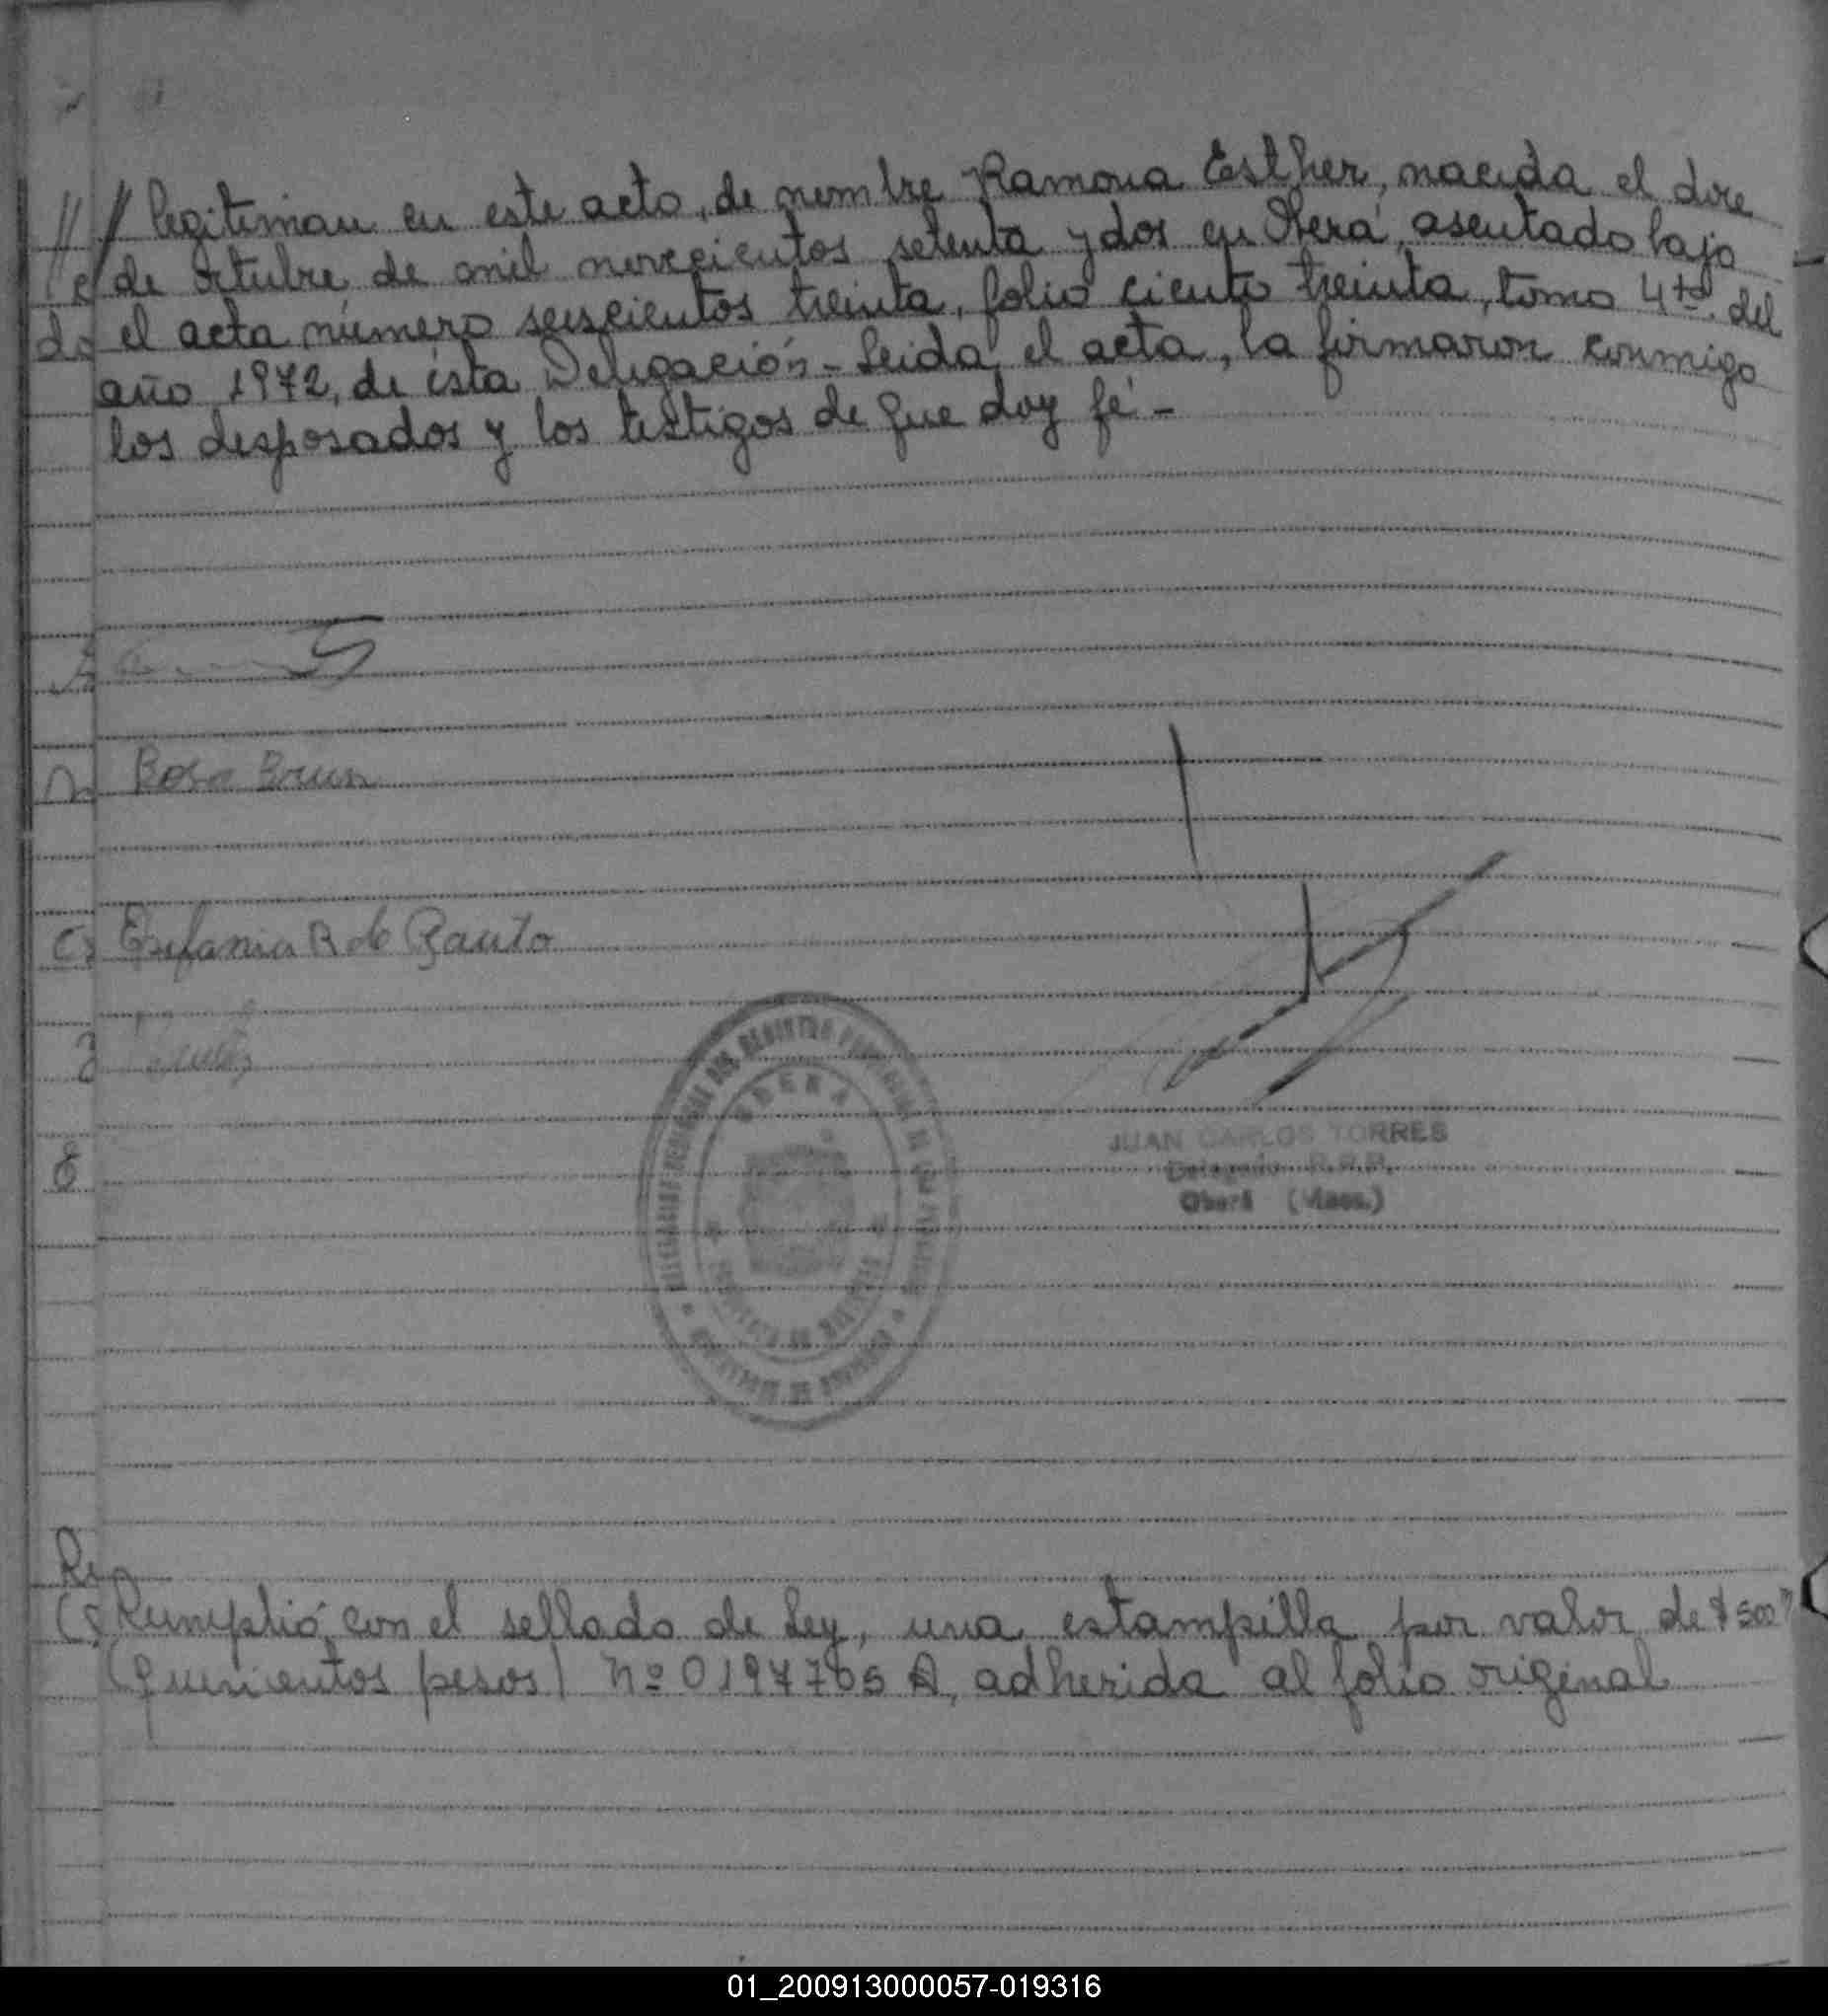 // legitiman en este acto, de nombre Ramona Esther, nacida el doce
de octubre de mil novecientos setenta y dos en Oberá, asentado bajo
el acta número seiscientos treinta, folio ciento treinta, tomo 4to. del
año 1972, de ésta Delegación - Leida el acta, la firmaron conmigo
los desposados y los testigos de que doy fé -
Rosa Brun
Estefania R de
JUAN CARLOS TORRES
Delegado R.P.P.
Oberá (Mnes.)
OBERA
Kumplió con el sellado de Ley, una estampilla por valor de $ 500
(quinientos pesos) Nº 0197765 A, adherida al folio original
01_200913000057-019316